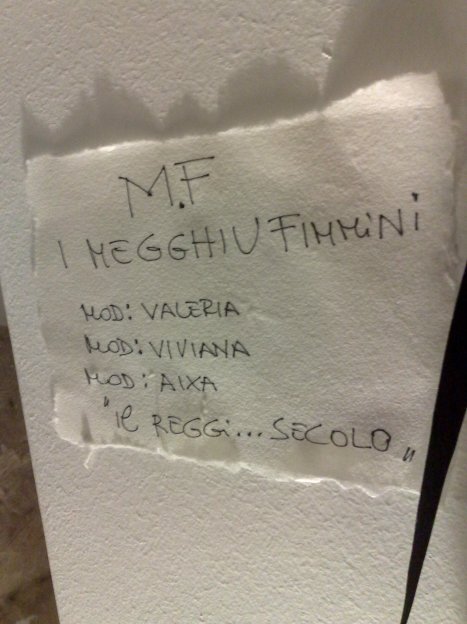 M.F
I MEGGHIU FIMMINI
MOD: VALERIA
MOD: VIVIANA
MOD: AIXA
"IL REGGI... SECOLO"